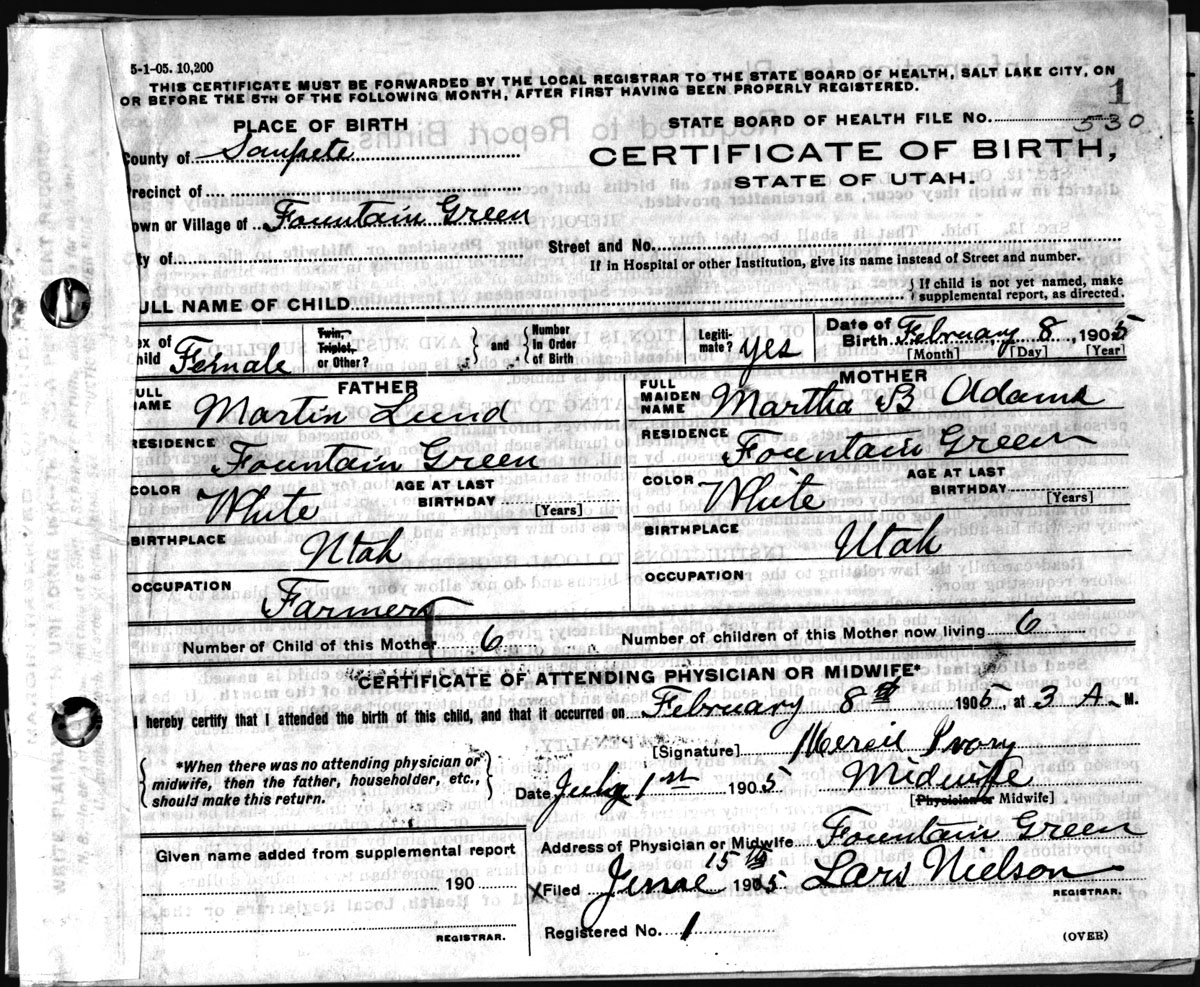 5-1-05. 10,200
THIS CERTIFICATE MUST BE FORWARDED BY THE LOCAL REGISTRAR TO THE STATE BOARD OF HEALTH, SALT LAKE CITY, ON
OR BEFORE THE 5TH OF THE FOLLOWING MONTH, AFTER FIRST HAVING BEEN PROPERLY REGISTERED.
1
PLACE OF BIRTH
STATE BOARD OF HEALTH FILE NO. 530
County of Sanpete
CERTIFICATE OF BIRTH,
STATE OF UTAH.
Precinct of
own or Village of Fountain Green
ty of
Street and No.
If in Hospital or other Institution, give its name instead of Street and number.
ULL NAME OF CHILD
If child is not yet named, make
supplemental report, as directed.
ex of
hild Female
Twin,
Triplet,
or Other?
and
Number
in Order
of Birth
Legiti-
mate? yes
Date of
Birth February 8, 1905
[Month] [Day] [Year]
FATHER
ULL
NAME Martin Lund
RESIDENCE
Fountain Green
COLOR White
AGE AT LAST
BIRTHDAY
[Years]
BIRTHPLACE
Utah
OCCUPATION
Farmer
MOTHER
FULL
MAIDEN
NAME Martha B Adams
RESIDENCE
Fountain Green
COLOR White
AGE AT LAST
BIRTHDAY
[Years]
BIRTHPLACE
Utah
OCCUPATION
Number of Child of this Mother 6
Number of children of this Mother now living 6
CERTIFICATE OF ATTENDING PHYSICIAN OR MIDWIFE*
I hereby certify that I attended the birth of this child, and that it occurred on February 8th 1905, at 3 A. M.
*When there was no attending physician or
midwife, then the father, householder, etc.,
should make this return.
[Signature] Ivory
Date July 1st 1905 Midwife
[Physician or Midwife]
Address of Physician or Midwife Fountain Green
Filed June 15th 1905 Lars Nielson
REGISTRAR.
Registered No. 1
Given name added from supplemental report
190
REGISTRAR.
(OVER)